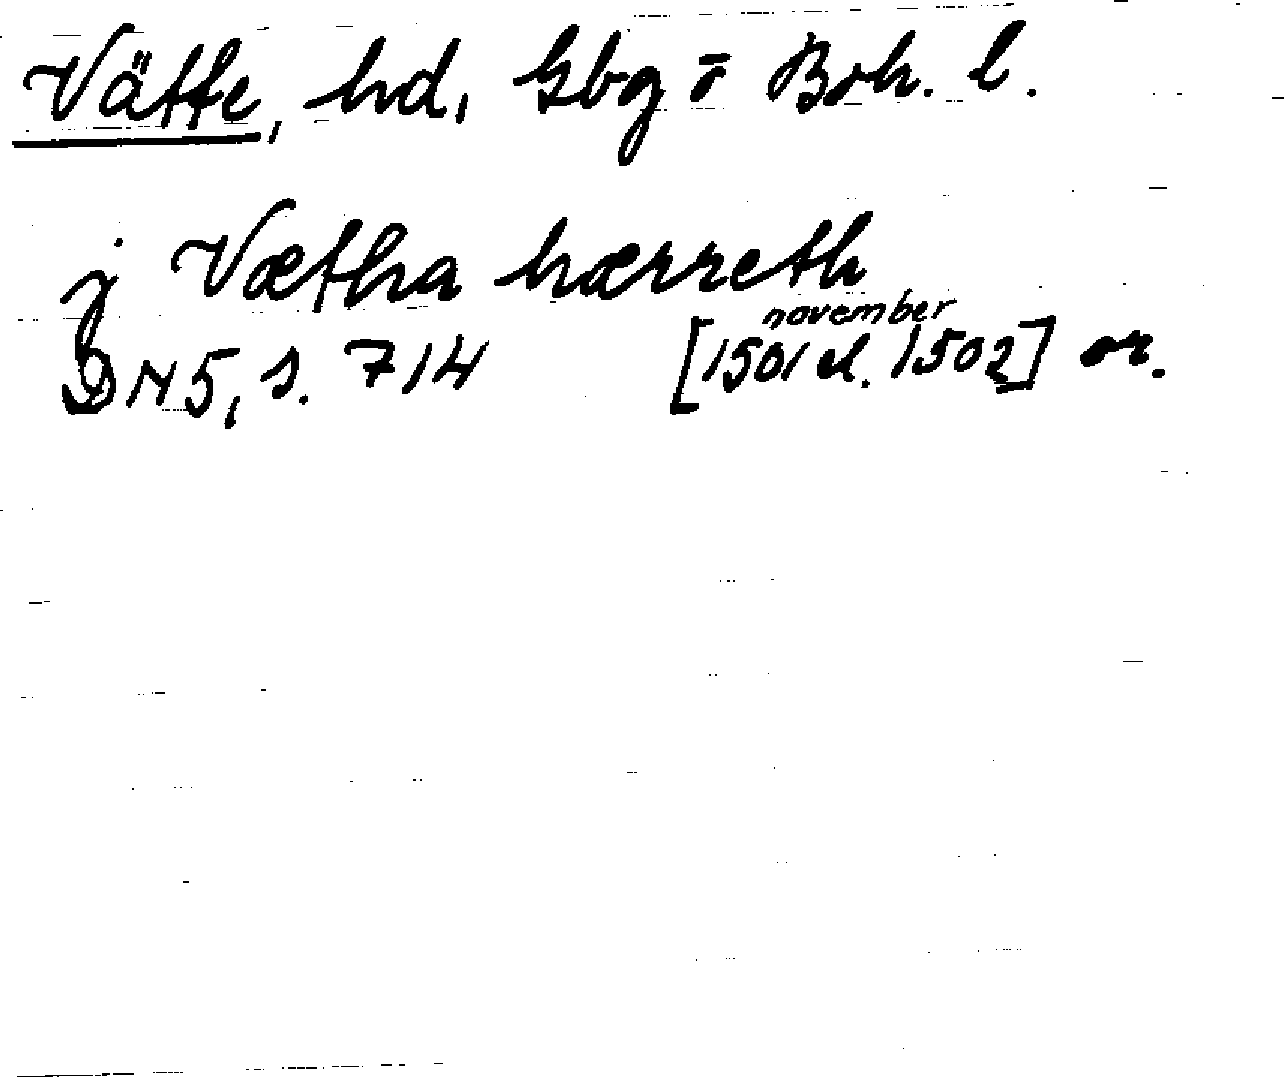 Vätte, hd, Gbg o Boh. l.
j Vætha hærreth
november
DN 5, s. 714 [1501 el. 1502] or.